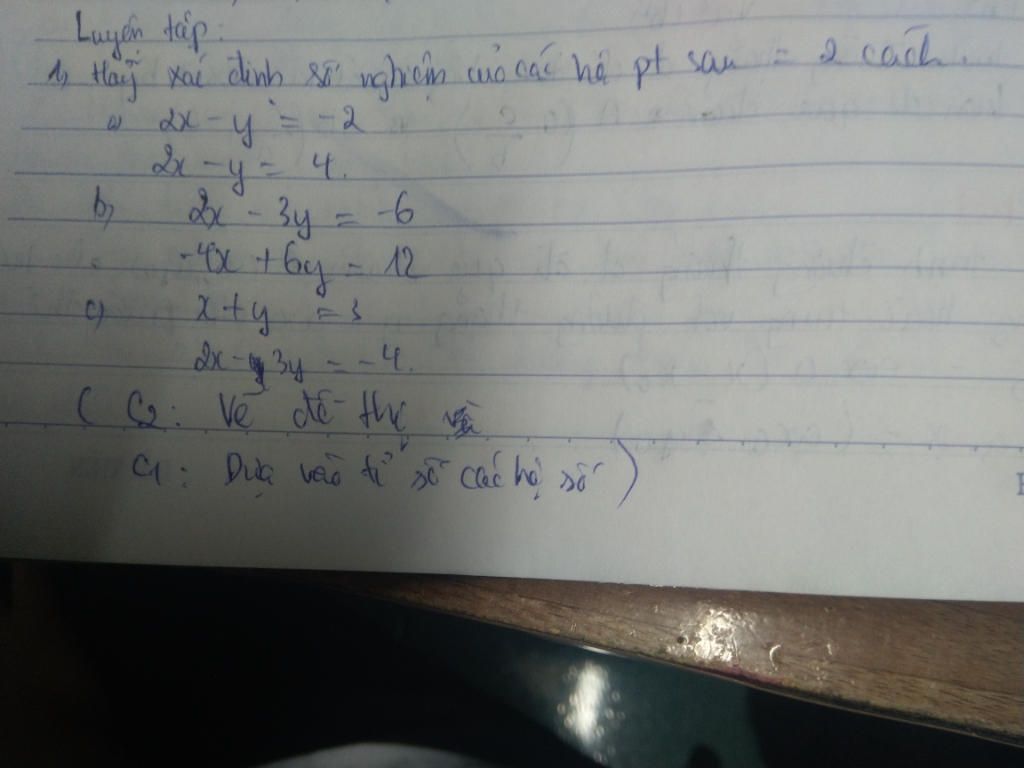 Luyện tập:
1, Hãy xác định số nghiệm của các hệ pt sau = 2 cách.
a) 2x - y = -2
2x - y = 4.
b) 2x - 3y = -6
-4x + 6y = 12
c) x + y = 3
2x - 3y = -4.
( C2: Vẽ đồ thị
C1: Dựa vào tỉ số các hệ số )